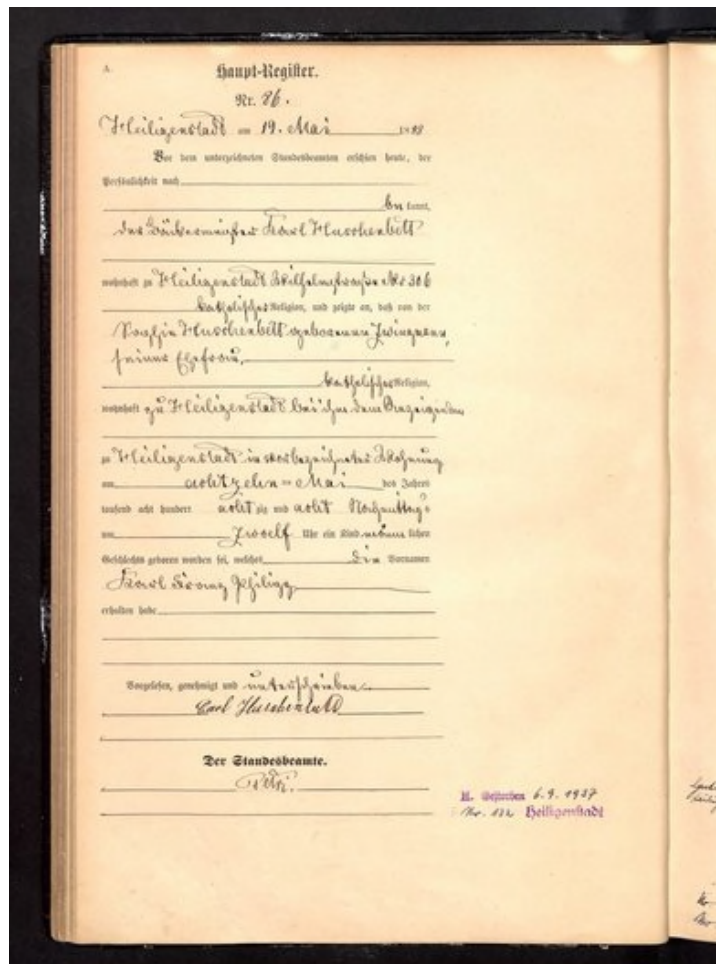 A.
Haupt-Register.
Nr. 86.
Heiligenstadt am 19. Mai 1888
Vor dem unterzeichneten Standesbeamten erschien heute, der
Persönlichkeit nach
be kannt,
der Bäckermeister Karl Huschenbett
wohnhaft zu Heiligenstadt Wilhelmstraße No 306
katholischer Religion, und zeigte an, daß von der
Sophie Huschenbett geborenen Zwingmann,
seiner Ehefrau,
katholischer Religion,
wohnhaft zu Heiligenstadt bei ihm dem Anzeigenden
zu Heiligenstadt in vorbezeichneter Wohnung
am achtzehn ten Mai des Jahres
tausend acht hundert acht zig und acht Nachmittags
um zwoelf Uhr ein Kind männ lichen
Geschlechts geboren worden sei, welches die Vornamen
Karl Franz Philipp
erhalten habe
Vorgelesen, genehmigt und unterschrieben
Carl Huschenbett
Der Standesbeamte.
H. Gestorben 6.9.1937
Nr. 132 Heiligenstadt